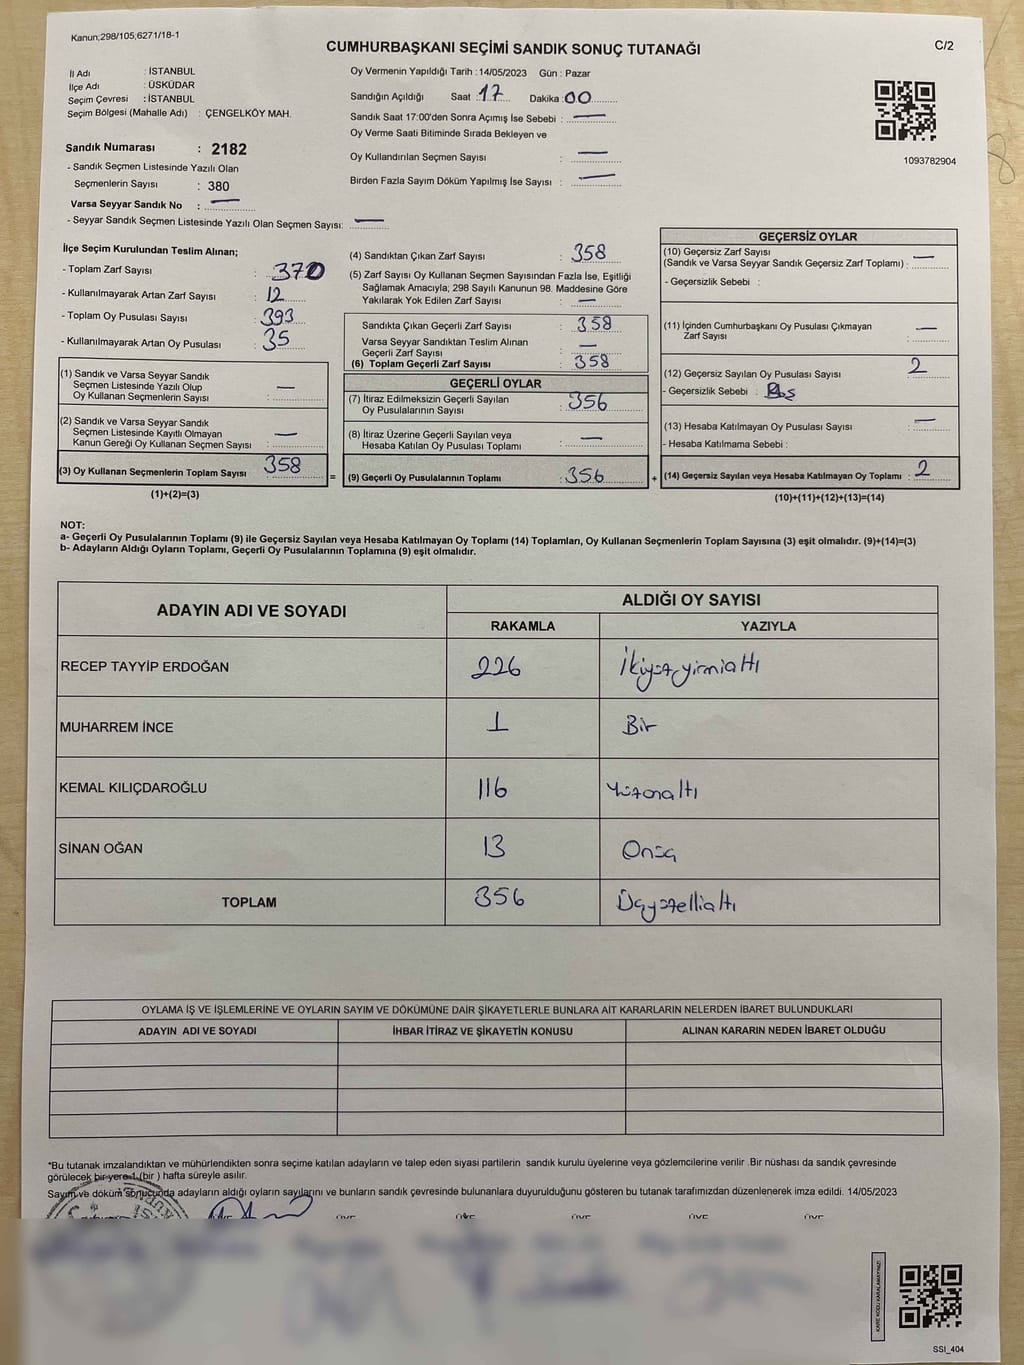 Kanun;298/105;6271/18-1
CUMHURBAŞKANI SEÇİMİ SANDIK SONUÇ TUTANAĞI
C/2
İl Adı : İSTANBUL
İlçe Adı : ÜSKÜDAR
Seçim Çevresi : İSTANBUL
Seçim Bölgesi (Mahalle Adı) : ÇENGELKÖY MAH.
Sandık Numarası : 2182
- Sandık Seçmen Listesinde Yazılı Olan
Seçmenlerin Sayısı : 380
Varsa Seyyar Sandık No : —
- Seyyar Sandık Seçmen Listesinde Yazılı Olan Seçmen Sayısı: —
Oy Vermenin Yapıldığı Tarih : 14/05/2023 Gün : Pazar
Sandığın Açıldığı Saat 17 Dakika : 00
Sandık Saat 17:00'den Sonra Açımış İse Sebebi : —
Oy Verme Saati Bitiminde Sırada Bekleyen ve
Oy Kullandırılan Seçmen Sayısı : —
Birden Fazla Sayım Döküm Yapılmış İse Sayısı : —
1093782904
İlçe Seçim Kurulundan Teslim Alınan;
- Toplam Zarf Sayısı : 370
- Kullanılmayarak Artan Zarf Sayısı : 12
- Toplam Oy Pusulası Sayısı : 393
- Kullanılmayarak Artan Oy Pusulası : 35
(1) Sandık ve Varsa Seyyar Sandık
Seçmen Listesinde Yazılı Olup
Oy Kullanan Seçmenlerin Sayısı : —
(2) Sandık ve Varsa Seyyar Sandık
Seçmen Listesinde Kayıtlı Olmayan
Kanun Gereği Oy Kullanan Seçmen Sayısı : —
(3) Oy Kullanan Seçmenlerin Toplam Sayısı : 358
(1)+(2)=(3)
(4) Sandıktan Çıkan Zarf Sayısı : 358
(5) Zarf Sayısı Oy Kullanan Seçmen Sayısından Fazla İse, Eşitliği
Sağlamak Amacıyla; 298 Sayılı Kanunun 98. Maddesine Göre
Yakılarak Yok Edilen Zarf Sayısı : —
Sandıkta Çıkan Geçerli Zarf Sayısı : 358
Varsa Seyyar Sandıktan Teslim Alınan
Geçerli Zarf Sayısı : —
(6) Toplam Geçerli Zarf Sayısı : 358
GEÇERLİ OYLAR
(7) İtiraz Edilmeksizin Geçerli Sayılan
Oy Pusulalarının Sayısı : 356
(8) İtiraz Üzerine Geçerli Sayılan veya
Hesaba Katılan Oy Pusulası Toplamı : —
= (9) Geçerli Oy Pusulalarının Toplamı : 356 +
GEÇERSİZ OYLAR
(10) Geçersiz Zarf Sayısı
(Sandık ve Varsa Seyyar Sandık Geçersiz Zarf Toplamı) : —
- Geçersizlik Sebebi :
(11) İçinden Cumhurbaşkanı Oy Pusulası Çıkmayan
Zarf Sayısı : —
(12) Geçersiz Sayılan Oy Pusulası Sayısı : 2
- Geçersizlik Sebebi :
(13) Hesaba Katılmayan Oy Pusulası Sayısı : —
- Hesaba Katılmama Sebebi :
(14) Geçersiz Sayılan veya Hesaba Katılmayan Oy Toplamı : 2
(10)+(11)+(12)+(13)=(14)
NOT:
a- Geçerli Oy Pusulalarının Toplamı (9) ile Geçersiz Sayılan veya Hesaba Katılmayan Oy Toplamı (14) Toplamları, Oy Kullanan Seçmenlerin Toplam Sayısına (3) eşit olmalıdır. (9)+(14)=(3)
b- Adayların Aldığı Oyların Toplamı, Geçerli Oy Pusulalarının Toplamına (9) eşit olmalıdır.
ADAYIN ADI VE SOYADI ALDIĞI OY SAYISI
RAKAMLA YAZIYLA
RECEP TAYYİP ERDOĞAN 226 İkiyüzyirmialtı
MUHARREM İNCE 1 Bir
KEMAL KILIÇDAROĞLU 116 Yüzonaltı
SİNAN OĞAN 13 Onüç
TOPLAM 356 Üçyüzellialtı
OYLAMA İŞ VE İŞLEMLERİNE VE OYLARIN SAYIM VE DÖKÜMÜNE DAİR ŞİKAYETLERLE BUNLARA AİT KARARLARIN NELERDEN İBARET BULUNDUKLARI
ADAYIN ADI VE SOYADI İHBAR İTİRAZ VE ŞİKAYETİN KONUSU ALINAN KARARIN NEDEN İBARET OLDUĞU
*Bu tutanak imzalandıktan ve mühürlendikten sonra seçime katılan adayların ve talep eden siyasi partilerin sandık kurulu üyelerine veya gözlemcilerine verilir .Bir nüshası da sandık çevresinde
görülecek bir yere 1 (bir ) hafta süreyle asılır.
Sayım ve döküm sonucunda adayların aldığı oyların sayılarını ve bunların sandık çevresinde bulunanlara duyurulduğunu gösteren bu tutanak tarafımızdan düzenlenerek imza edildi. 14/05/2023
ÜYE ÜYE ÜYE ÜYE ÜYE
KARE KODU KARALAMAYINIZ!
SSI_404